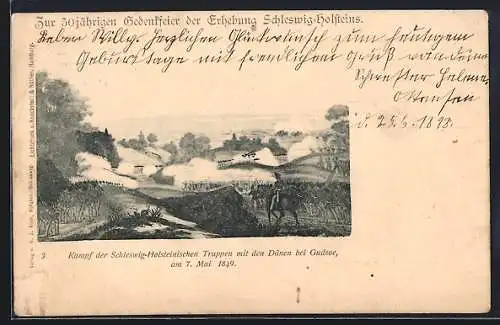 Zur 50jährigen Gedenkfeier der Erhebung Schleswig-Holsteins.
Lieben Willy. Herzlichen Glückwunsch zum heutigen
Geburtstage mit freundlichem Gruß von deine
Schwester Helene
Ottensen
d. 25. 6. 1898.
3
Kampf der Schleswig-Holsteinischen Truppen mit den Dänen bei Gudsoe,
am 7. Mai 1849.